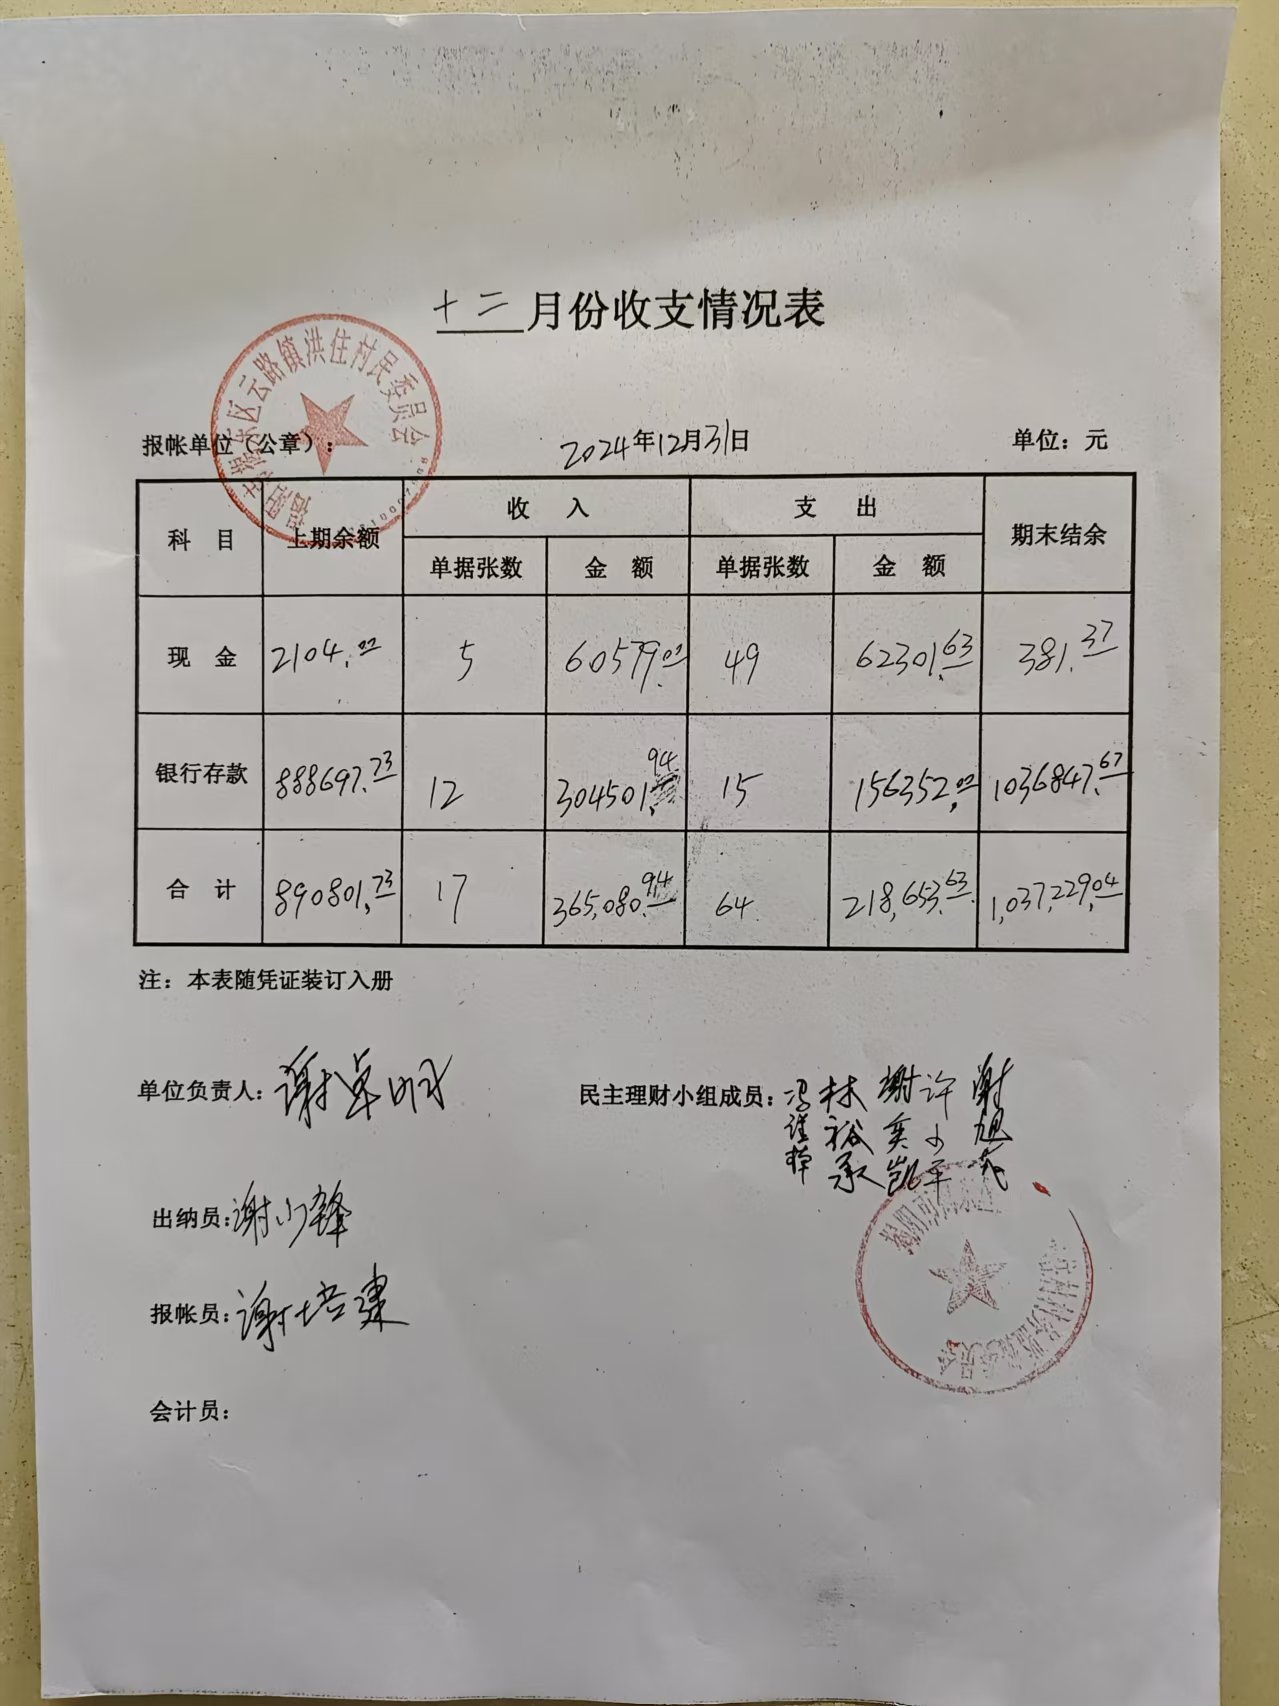 十二月份收支情况表
云路镇洪住村民委员会
报帐单位(公章): 2024年12月31日 单位: 元
科 目 上期余额 收 入 支 出 期末结余
单据张数 金 额 单据张数 金 额
现 金 2104.00 5 60579.00 49 62301.63 381.37
银行存款 888697.73 12 304501.94 15 156352.00 1036847.67
合 计 890801.73 17 365,080.94 64 218,653.63 1,037,229.04
注: 本表随凭证装订入册
单位负责人: 谢卓明 民主理财小组成员: 林裕承 谢奕凯 许少平 谢旭茂
出纳员: 谢少锋
报帐员: 谢培
会计员: